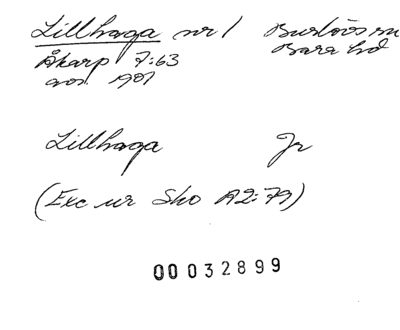 Lillhaga nr 1 Burlövs sn
Åkarp 7:63 Bara hd
avs. 1901
Lillhaga Jr
(Exc ur Sko A2:79)
00032899